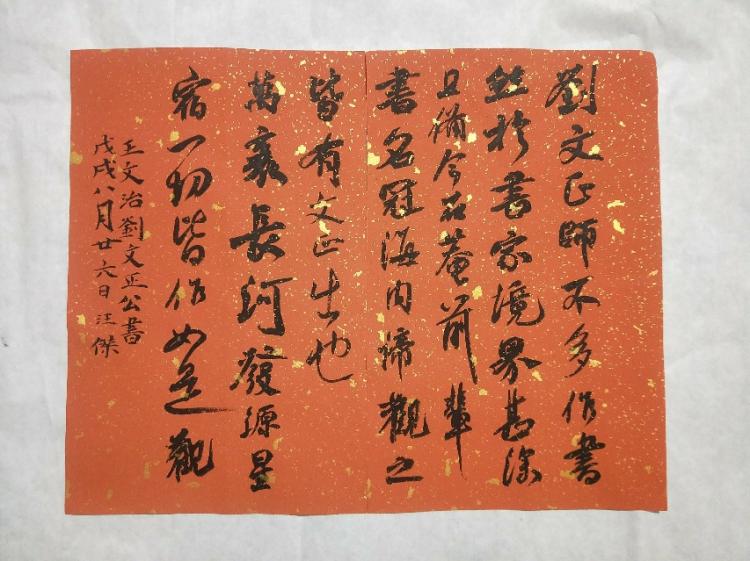 劉文正師不多作書
然於書家境界甚深
且備今石菴前輩
書名冠海内諦觀之
皆有文正出也
萬裏長河發源星
宿一切皆作如是觀
王文治劉文正公書
戊戌八月廿六日汪傑